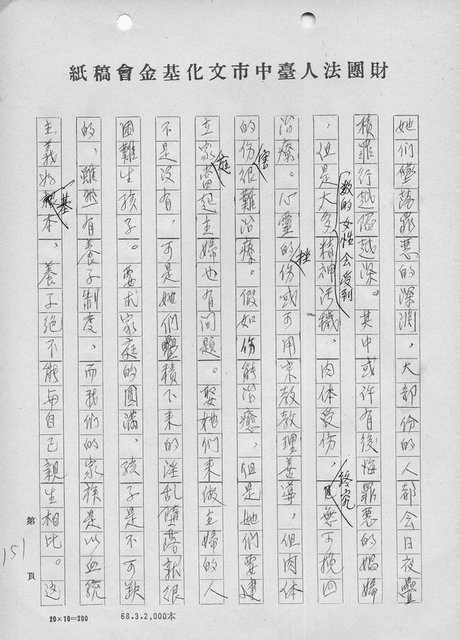 財團法人臺中市文化基金會稿紙
她們墮落罪惡的深淵，大部份的人都會日夜疊
積罪行越陷越深。其中或許有後悔罪惡的娼婦
，但是大多數的女性會受到精神污穢，肉体受傷，終究無可挽回
治療。心靈的挫傷或可用宗教教理善導，但肉体
的傷害很難治療。假如傷能治癒，但是她們要建
立家庭當起主婦也有問題。娶她們來做主婦的人
不是沒有，可是她們疊積下來的淫乱墮落就很
困難生孩子。要求家庭的圓滿，孩子是不可缺
的，雖然有養子制度，而我們的家族是以血統
主義為基本，養子絕不能與自己親生相比。這
第 151 頁
20×10=200
68.3.2,000本